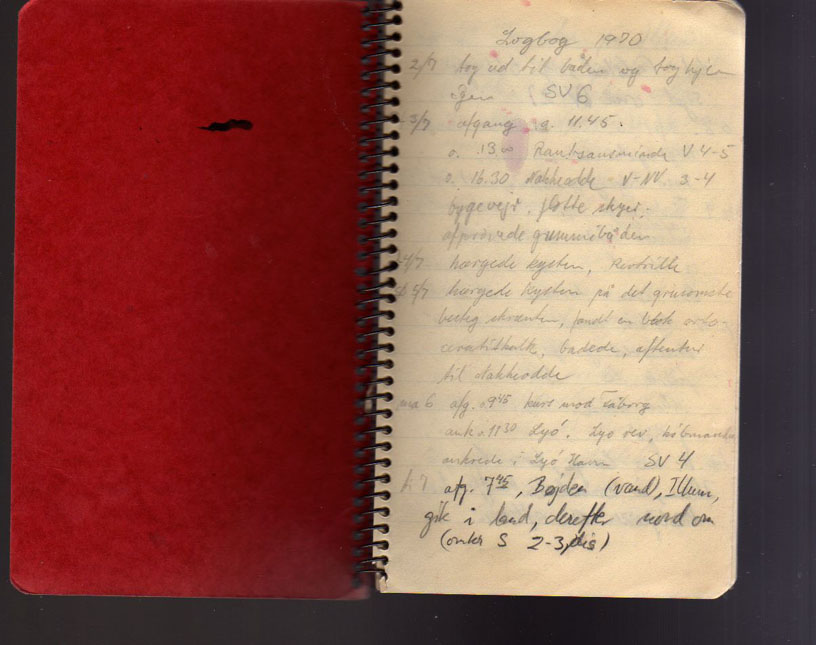 Logbog 1970
2/7 tog ud til båden og tog hjem
igen SV 6
3/7 afgang 11.45.
o. 13⁰⁰ V 4-5
o. 16.30 Nakkeodde V-NV 3-4
bygevejr, flotte skyer.
afprøvede gummibåden
4/7 hærgede kysten,
5/7 hærgede kysten på det grusomste
besteg skrænten, fandt en blok orto-
ceratitkalk, badede, aftentur
til Nakkeodde
ma 6 afg. 9⁴⁵ kurs mod Fåborg
ank. 11³⁰ Lyø. Lyø rev, købmand
ankrede i Lyø Havn SV 4
7 afg. 7⁴⁵, Bøjden (vand), Illum,
gik i land, derefter nord om
S 2-3, dis)